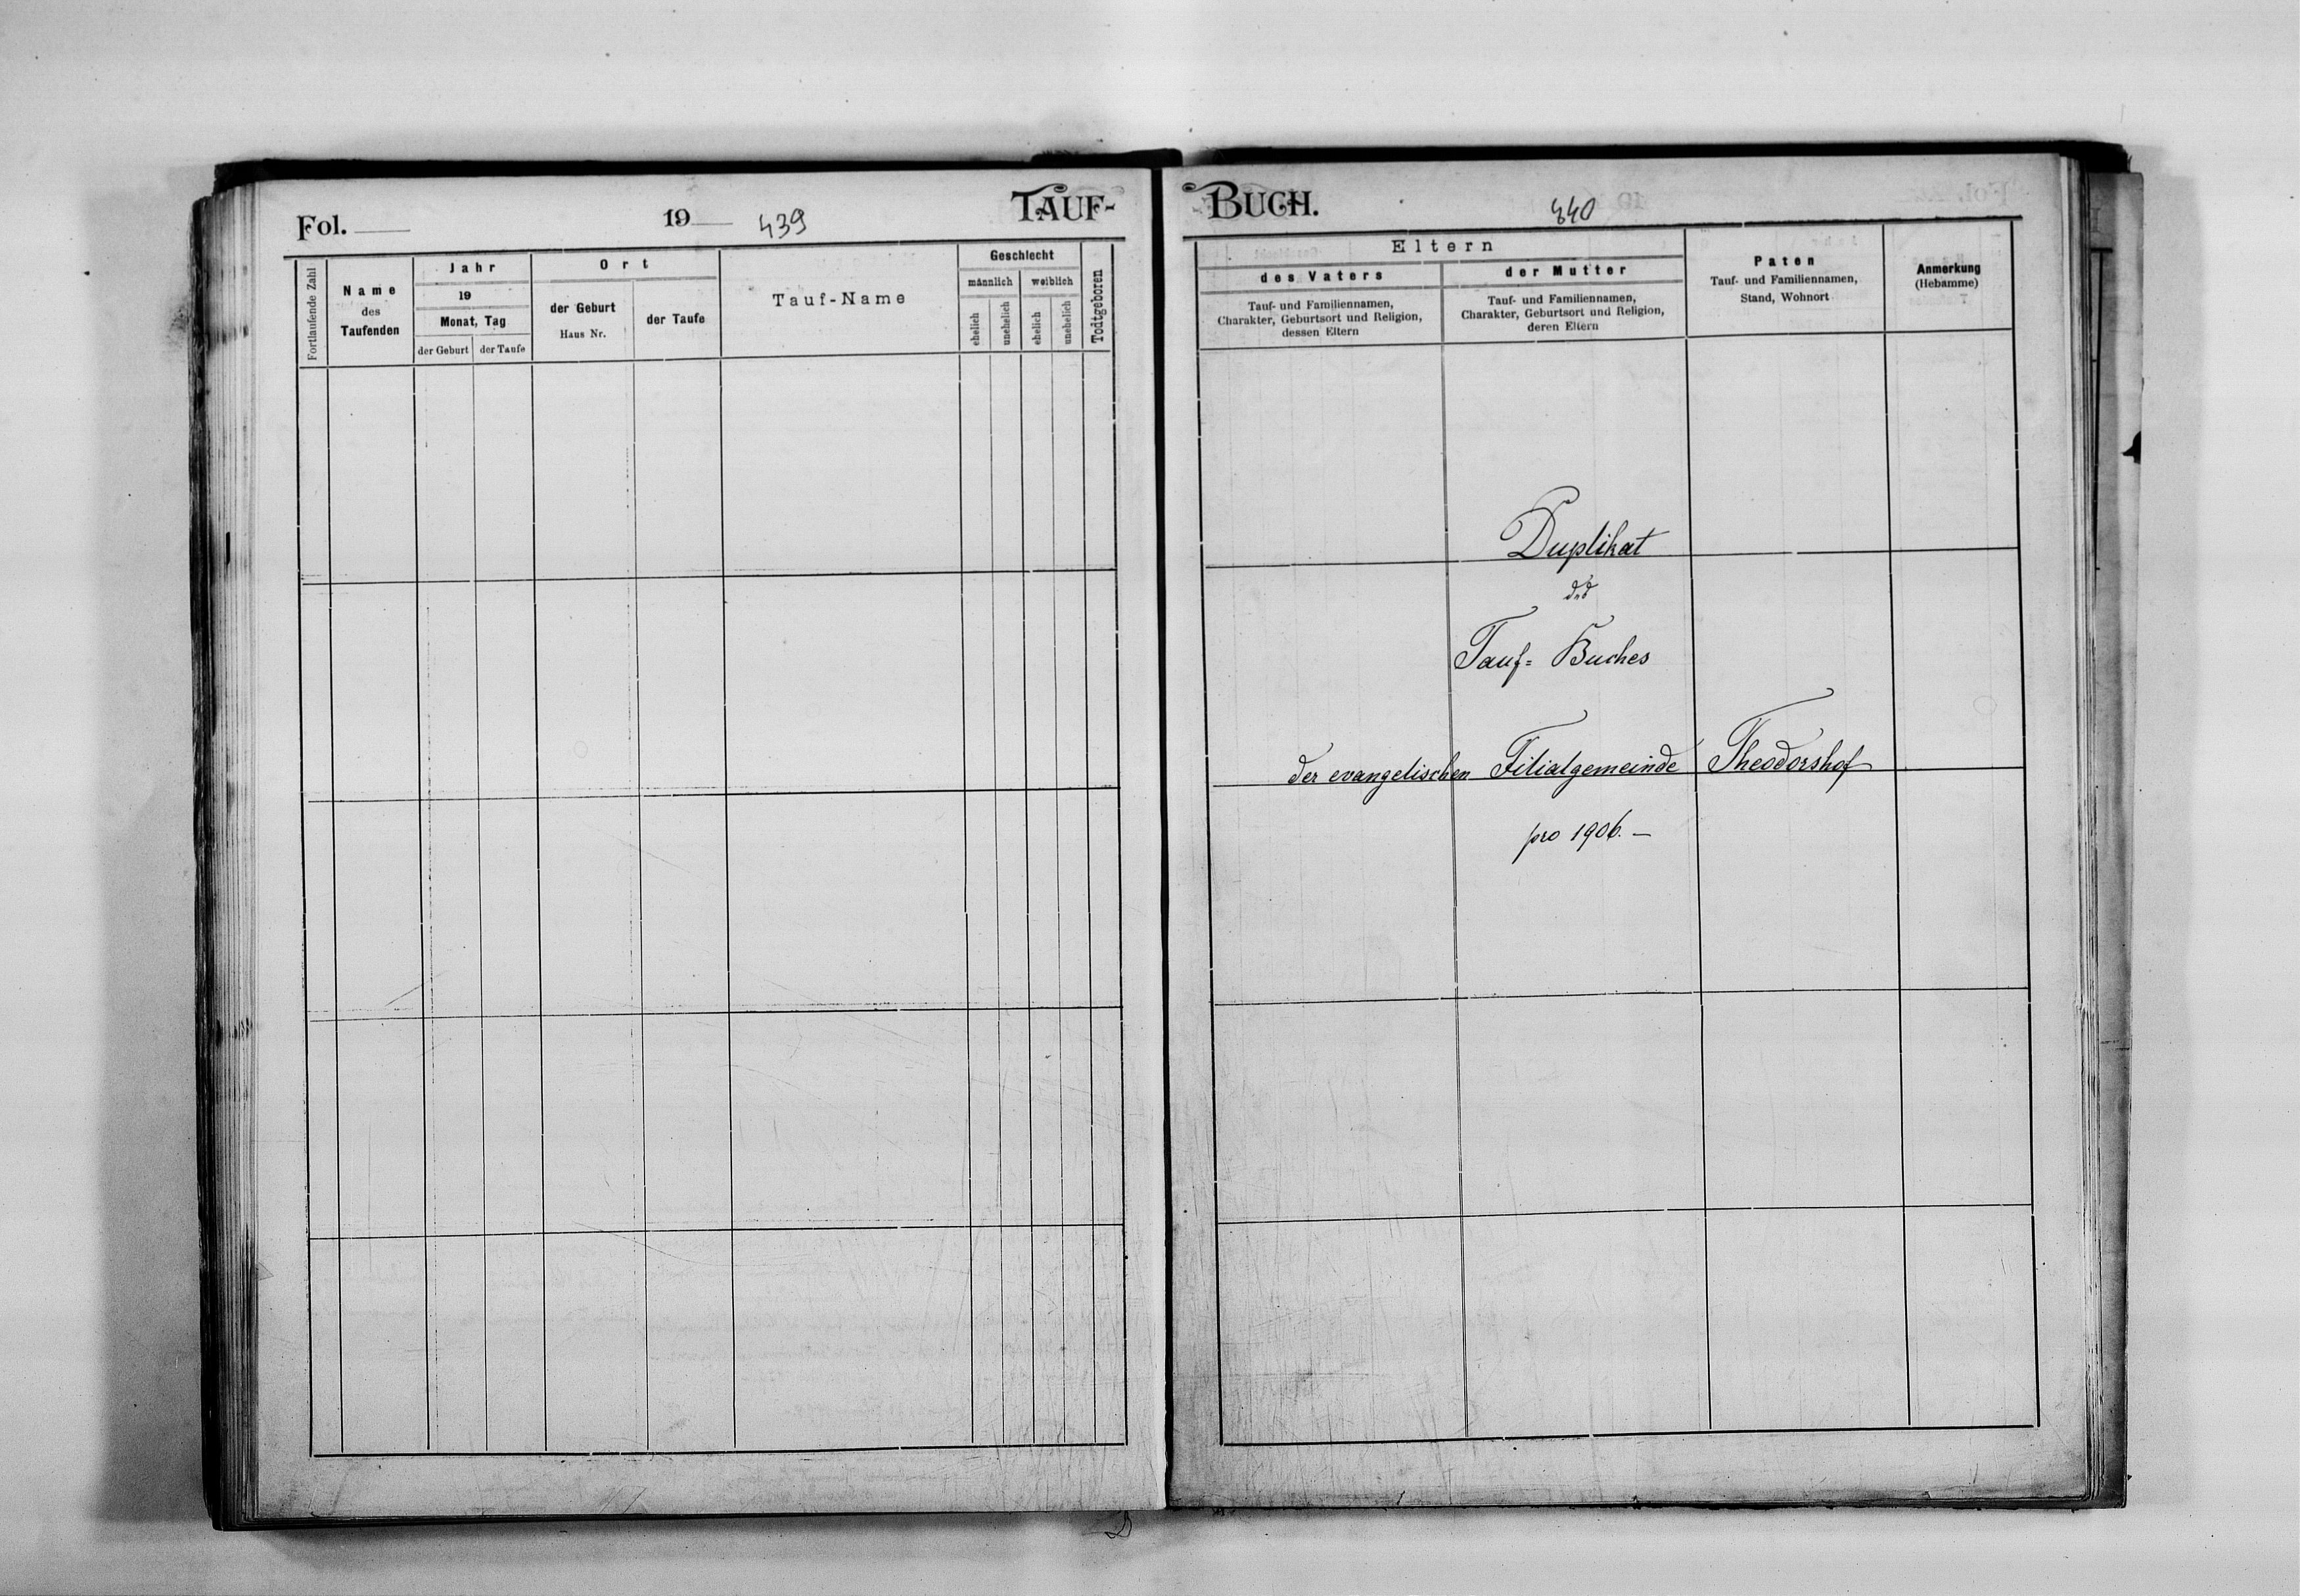 Fol. 19 439 TAUF-
Fortlaufende Zahl
Name
des
Taufenden
Jahr
19
Monat, Tag
der Geburt
der Taufe
Ort
der Geburt
Haus Nr.
der Taufe
Tauf-Name
Geschlecht
männlich
weiblich
ehelich
unehelich
ehelich
unehelich
Todtgeboren
BUCH. 440
Eltern
des Vaters
Tauf- und Familiennamen,
Charakter, Geburtsort und Religion,
dessen Eltern
der Mutter
Tauf- und Familiennamen,
Charakter, Geburtsort und Religion,
deren Eltern
Paten
Tauf- und Familiennamen,
Stand, Wohnort
Anmerkung
(Hebamme)
Duplikat
des
Tauf= Buches
der evangelischen Filialgemeinde Theodorshof
pro 1906. —